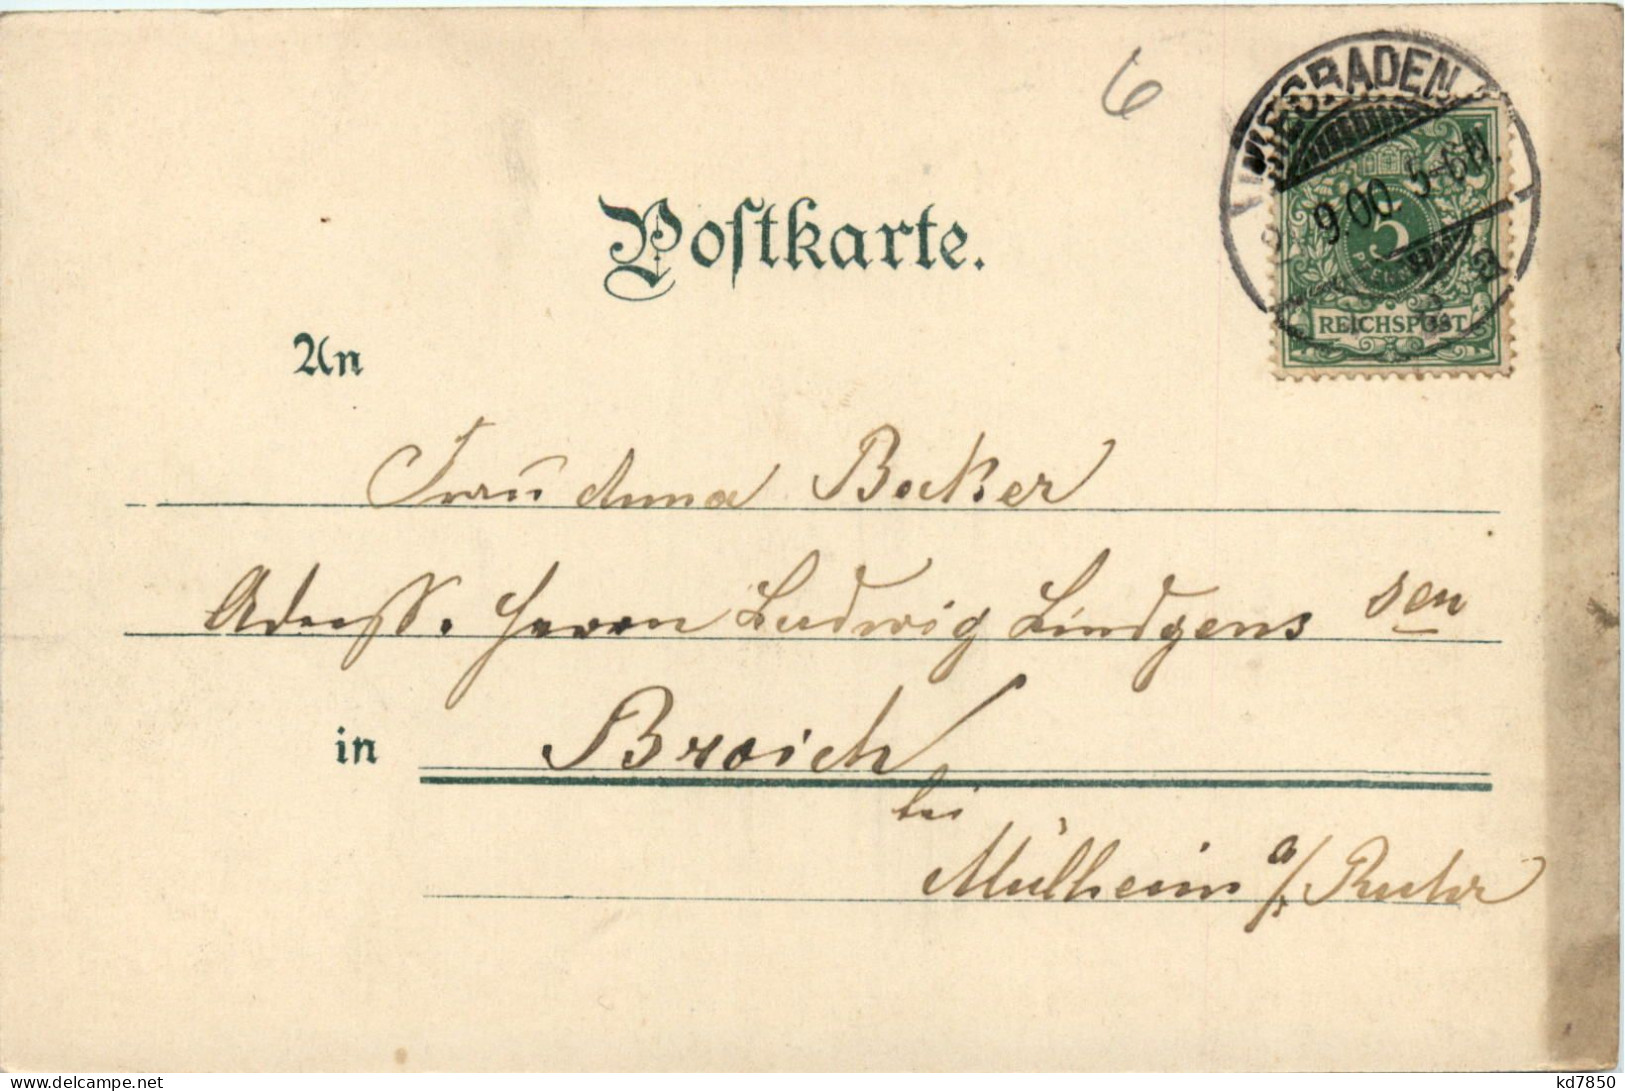 6
WIESBADEN
9.00. 5-6N.
5
REICHSPOST
a
Postkarte.
An
Frau Anna Becker
Adress. Herrn Ludwig Lindgens sen
in Broich
bei
Mülheim a/ Ruhr
kd7850